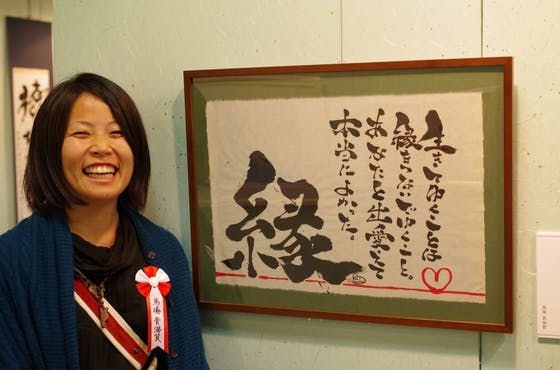 生きてゆくことは
縁をつないでゆくこと。
あなたと出愛えて
本当によかった。
縁
馬場 貴海賀